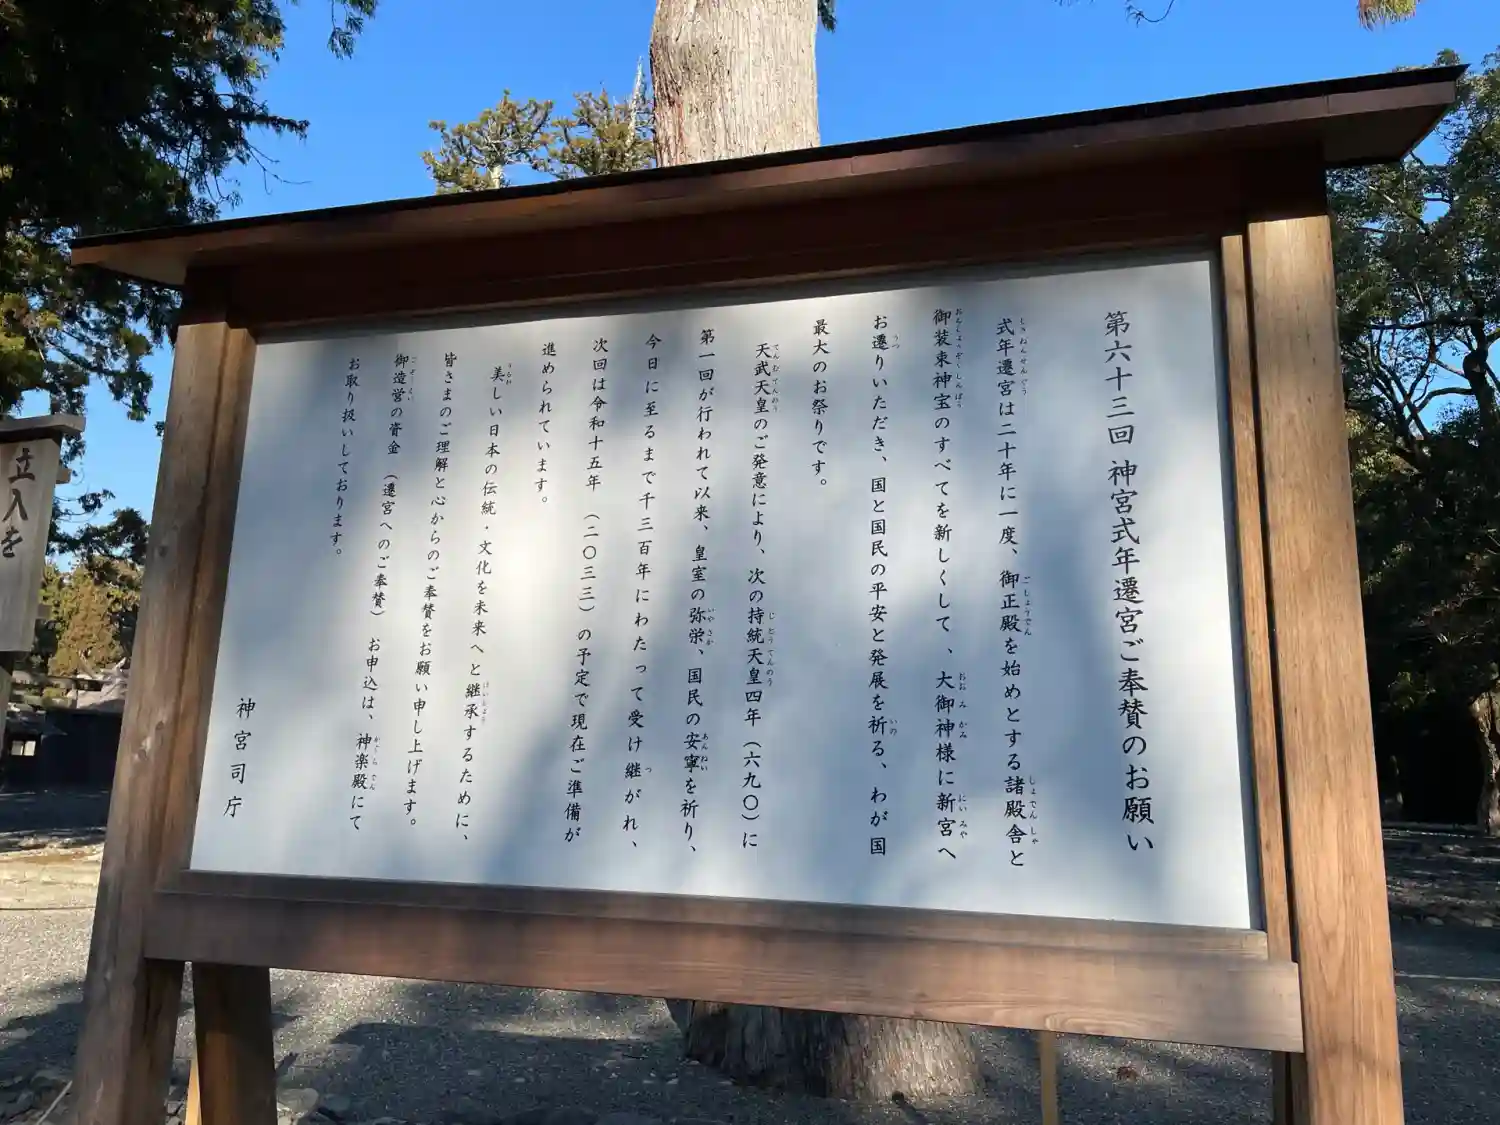 第六十三回 神宮式年遷宮ご奉賛のお願い
式年遷宮は二十年に一度、御正殿を始めとする諸殿舎と
御装束神宝のすべてを新しくして、大御神様に新宮へ
お遷りいただき、国と国民の平安と発展を祈る、わが国
最大のお祭りです。
天武天皇のご発意により、次の持統天皇四年（六九〇）に
第一回が行われて以来、皇室の弥栄、国民の安寧を祈り、
今日に至るまで千三百年にわたって受け継がれ、
次回は令和十五年（二〇三三）の予定で現在ご準備が
進められています。
美しい日本の伝統・文化を未来へと継承するために、
皆さまのご理解と心からのご奉賛をお願い申し上げます。
御造営の資金（遷宮へのご奉賛）お申込は、神楽殿にて
お取り扱いしております。
神宮司庁
立入を